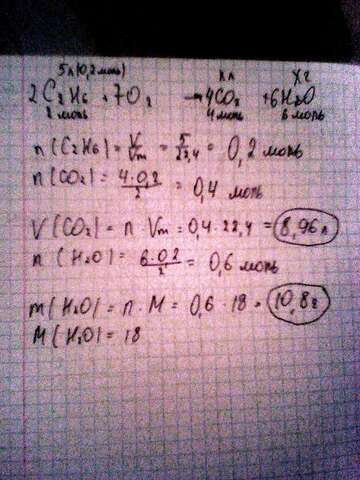 5 л (0,2 моль) x л x г
2C₂H₆ + 7O₂ → 4CO₂ + 6H₂O
2 моль 4 моль 6 моль
n(C₂H₆) = V/Vm = 5/22,4 = 0,2 моль
n(CO₂) = 4·0,2/2 = 0,4 моль
V(CO₂) = n · Vm = 0,4 · 22,4 = 8,96 л
n(H₂O) = 6·0,2/2 = 0,6 моль
m(H₂O) = n · M = 0,6 · 18 = 10,8 г
M(H₂O) = 18